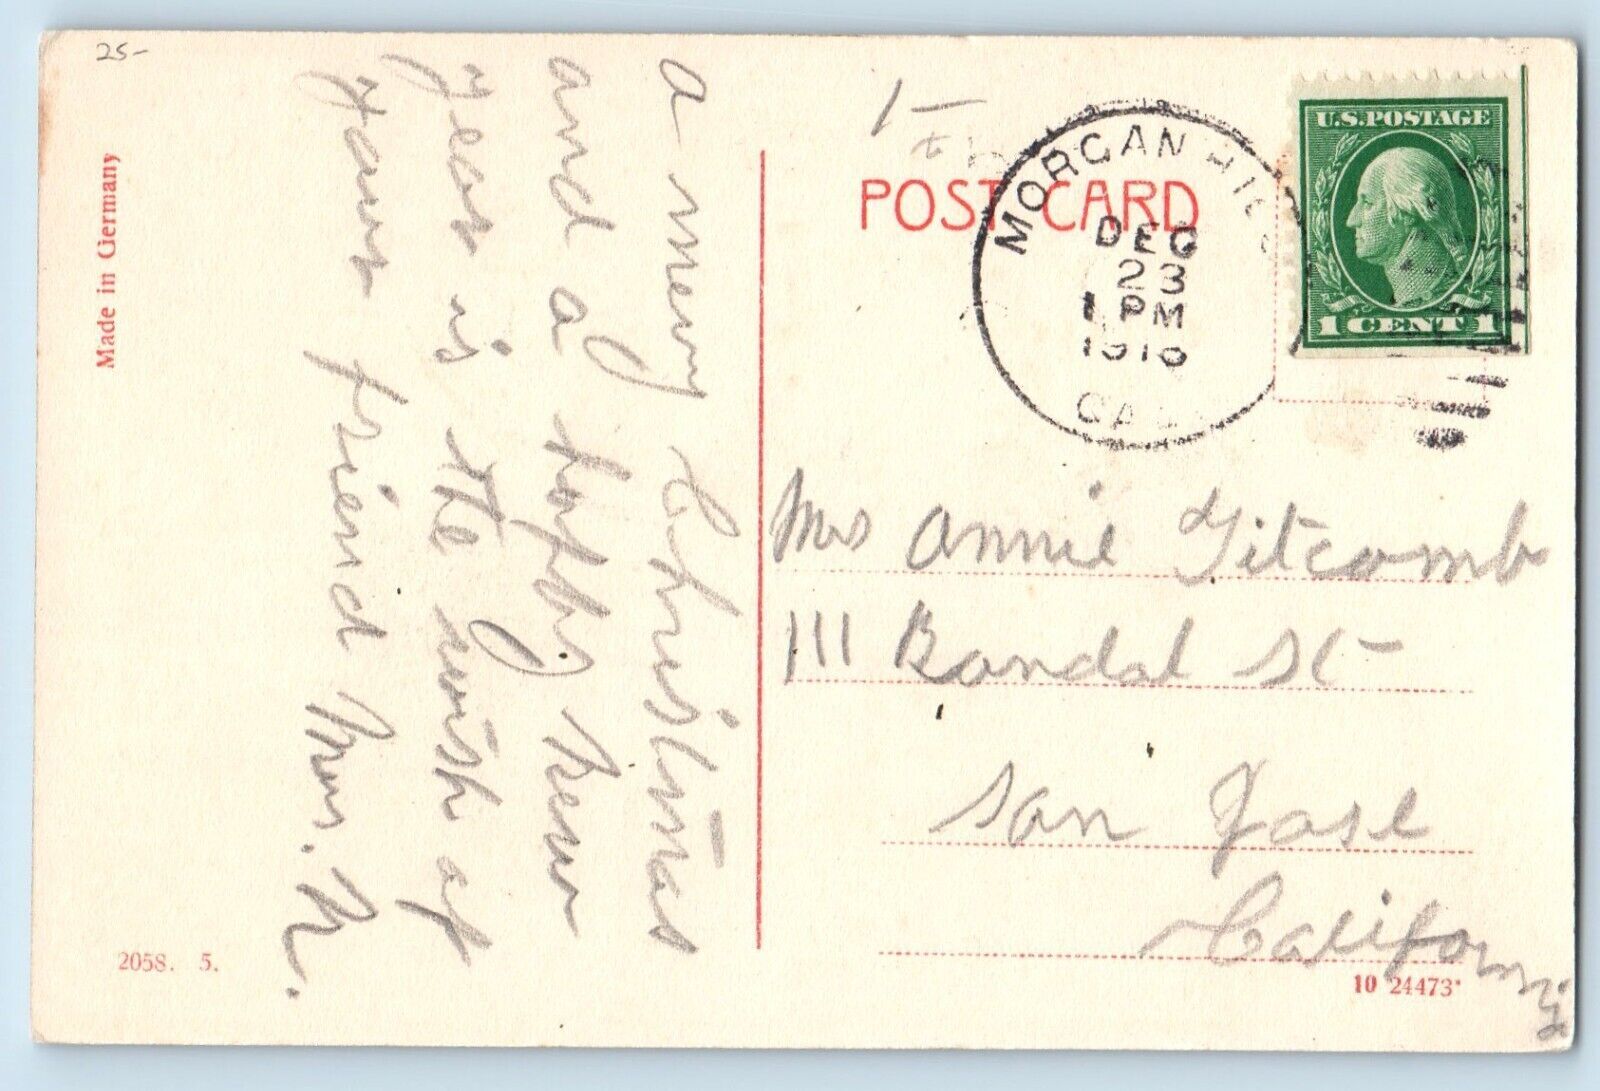 25-
Made in Germany
a merry Christmas
and a happy New
year is the wish of
your friend Mrs. N.
2058. 5.
POST CARD
MORGAN HILL
DEC
23
1 PM
CAL
U.S. POSTAGE
1 CENT 1
Mrs Annie Titcomb
111 Randal St
San Jose
California
10 24473*